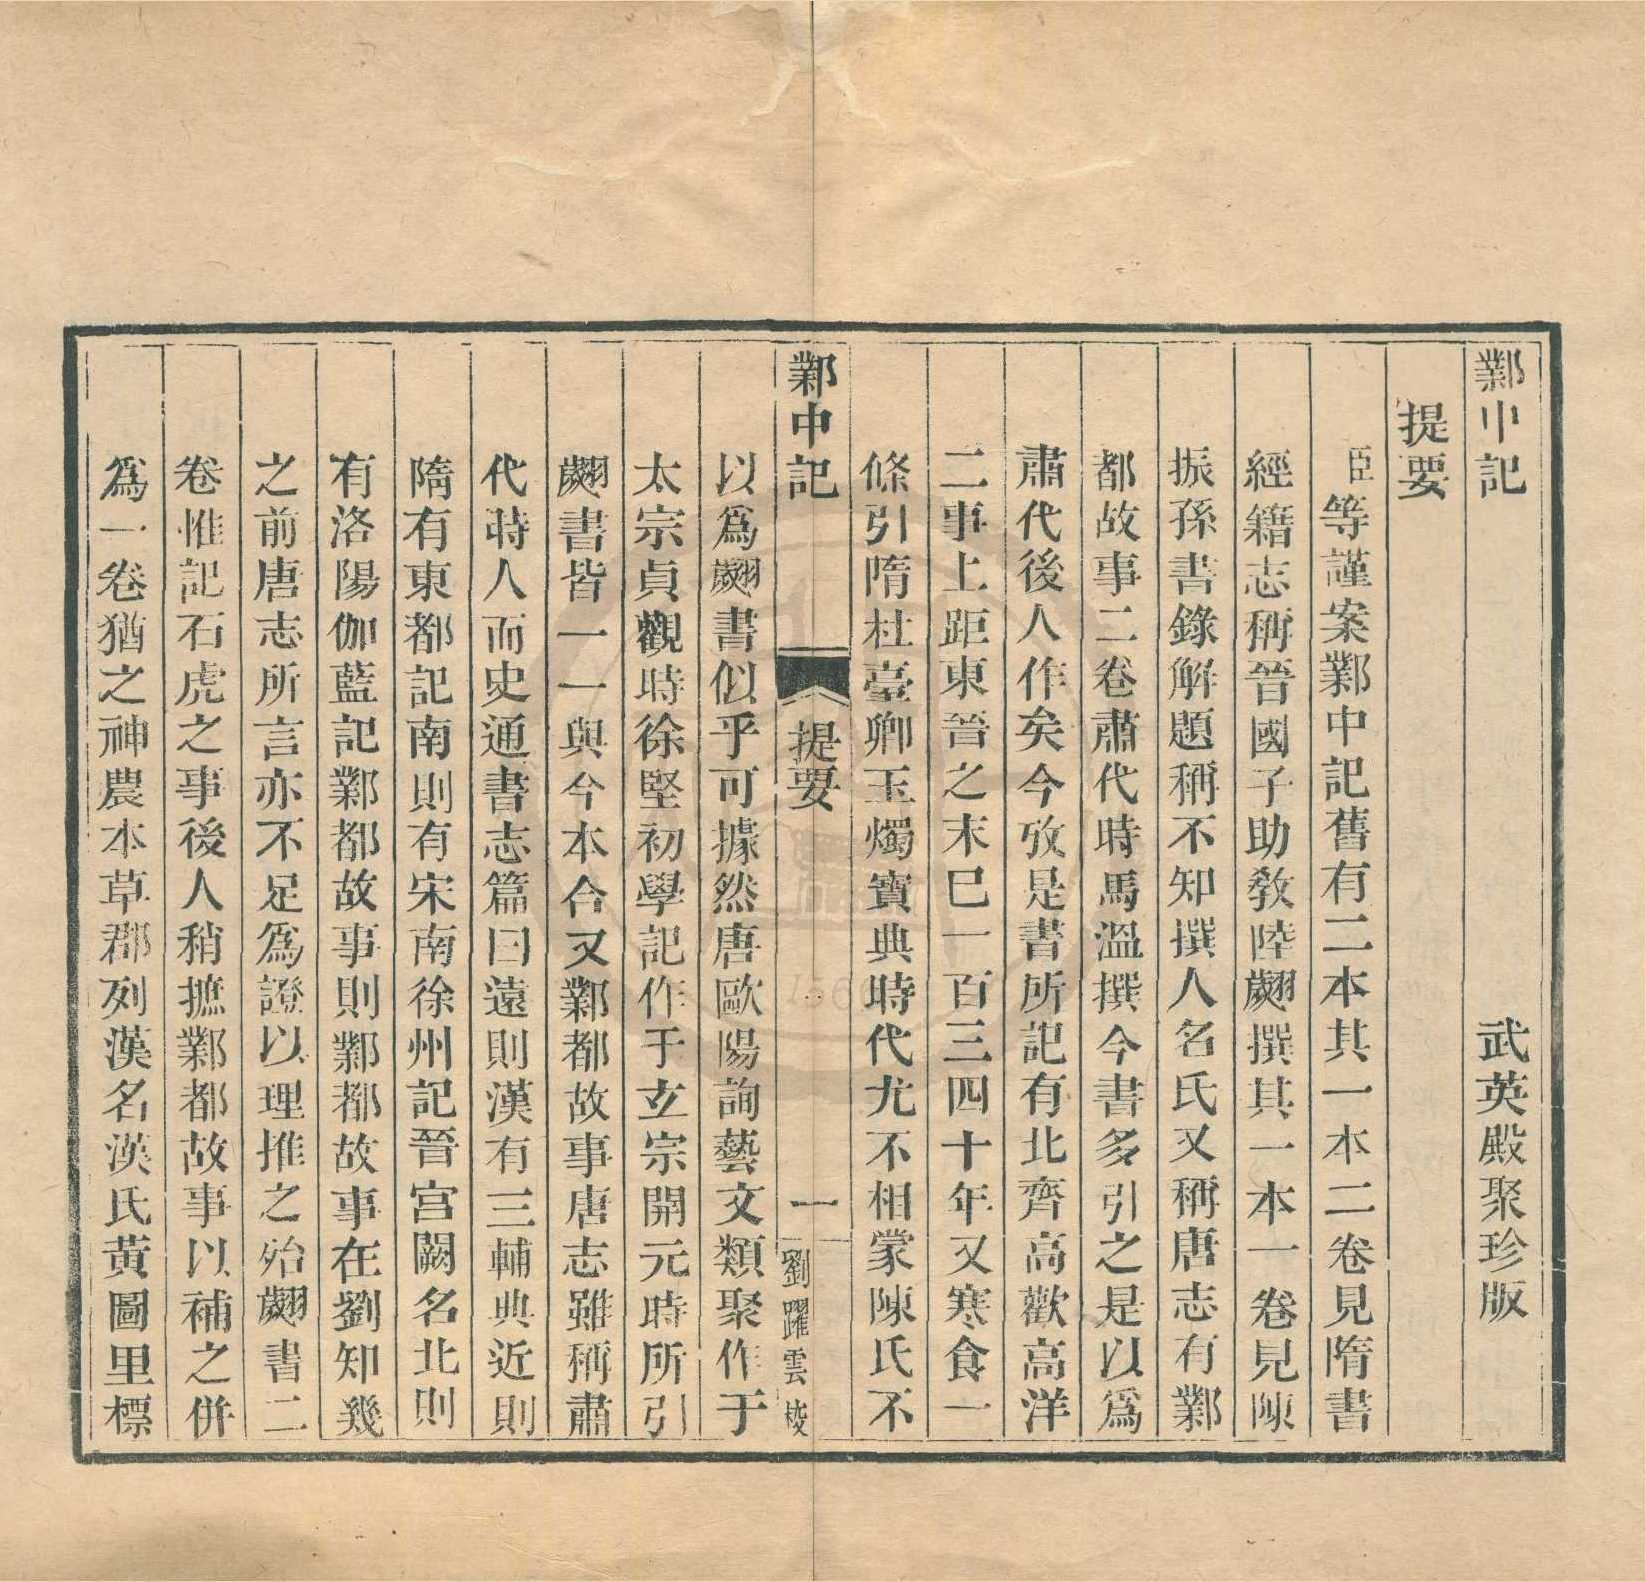 鄴中記 武英殿聚珍版
提要
臣等謹案鄴中記舊有二本其一本二卷見隋書
經籍志稱晉國子助敎陸翽撰其一本一卷見陳
振孫書錄解題稱不知撰人名氏又稱唐志有鄴
都故事二卷肅代時馬溫撰今書多引之是以爲
肅代後人作矣今攷是書所記有北齊高歡高洋
二事上距東晉之末已一百三四十年又寒食一
條引隋杜臺卿玉燭寶典時代尤不相蒙陳氏不
鄴中記 提要 一 劉躍雲校
以爲翽書似乎可據然唐歐陽詢藝文類聚作于
太宗貞觀時徐堅初學記作于玄宗開元時所引
翽書皆一一與今本合又鄴都故事唐志雖稱肅
代時人而史通書志篇曰遠則漢有三輔典近則
隋有東都記南則有宋南徐州記晉宮闕名北則
有洛陽伽藍記鄴都故事則鄴都故事在劉知幾
之前唐志所言亦不足爲證以理推之殆翽書二
卷惟記石虎之事後人稍摭鄴都故事以補之併
爲一卷猶之神農本草郡列漢名漢氏黃圖里標